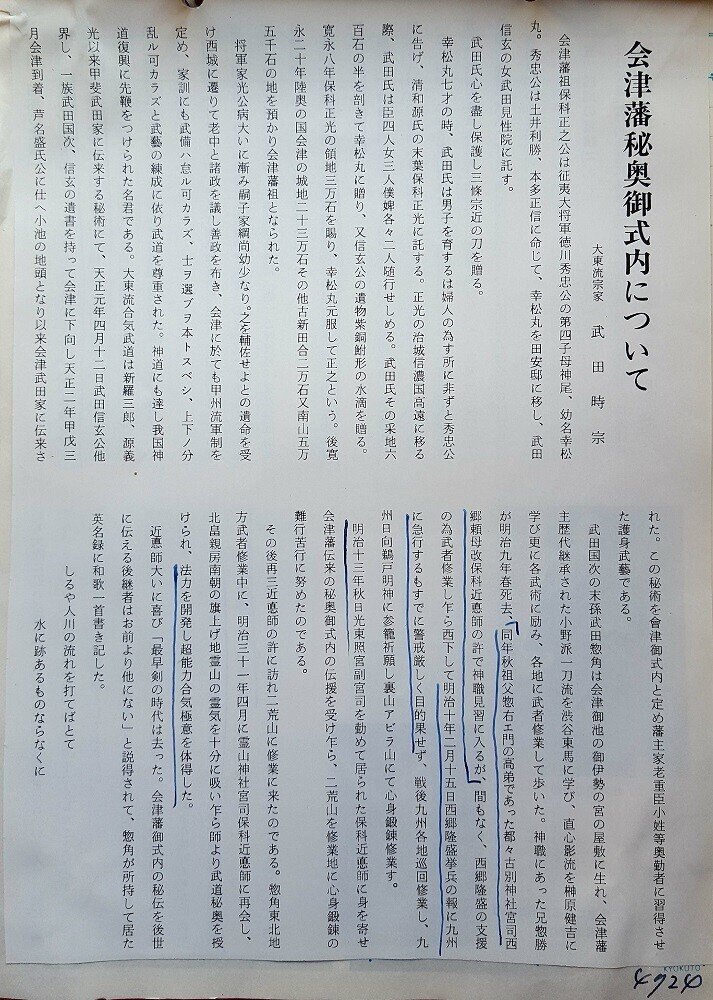 会津藩秘奥御式内について
大東流宗家　武田時宗
会津藩祖保科正之公は征夷大将軍徳川秀忠公の第四子母神尾、幼名幸松
丸。秀忠公は土井利勝、本多正信に命じて、幸松丸を田安邸に移し、武田
信玄の女武田見性院に託す。
武田氏心を盡し保護し三條宗近の刀を贈る。
幸松丸七才の時、武田氏は男子を育するは婦人の為す所に非ずと秀忠公
に告げ、清和源氏の末葉保科正光に託する。正光の治城信濃国高遠に移る
際、武田氏は臣四人女三人僕婢各々二人随行せしめる。武田氏その采地六
百石の半を割きて幸松丸に贈り、又信玄公の遺物紫銅鮒形の水滴を贈る。
寛永八年保科正光の領地三万石を賜り、幸松丸元服して正之という。後寛
永二十年陸奥の国会津の城地二十三万石その他古新田合二万石又南山五万
五千石の地を預かり会津藩祖となられた。
将軍家光公病大いに漸み嗣子家綱尚幼少なり。之を輔佐せよとの遺命を受
け西城に遷りて老中と諸政を議し善政を布き、会津に於ても甲州流軍制を
定め、家訓にも武備ハ怠ル可カラズ、士ヲ選ブヲ本トスベシ、上下ノ分
乱ル可カラズと武藝の練成に依り武道を尊重された。神道にも達し我国神
道復興に先鞭をつけられた名君である。大東流合気武道は新羅三郎、源義
光以来甲斐武田家に伝来する秘術にて、天正元年四月十二日武田信玄公他
界し、一族武田国次、信玄の遺書を持って会津に下向し天正二年甲戊三
月会津到着、芦名盛氏公に仕へ小池の地頭となり以来会津武田家に伝来さ
れた。この秘術を會津御式内と定め藩主家老重臣小姓等奥勤者に習得させ
た護身武藝である。
武田国次の末孫武田惣角は会津御池の御伊勢の宮の屋敷に生れ、会津藩
主歴代継承された小野派一刀流を渋谷東馬に学び、直心影流を榊原健吉に
学び更に各武術に励み、各地に武者修業して歩いた。神職にあった兄惣勝
が明治九年春死去、同年秋祖父惣右エ門の高弟であった都々古別神社宮司西
郷頼母改保科近悳師の許で神職見習に入るが、間もなく、西郷隆盛の支援
の為武者修業し乍ら西下して明治十年二月十五日西郷隆盛挙兵の報に九州
に急行するもすでに警戒厳しく目的果せず、戦後九州各地巡回修業し、九
州日向鵜戸明神に参籠祈願し裏山アビラ山にて心身鍛錬修業す。
明治十三年秋日光東照宮副宮司を勤めて居られた保科近悳師に身を寄せ
会津藩伝来の秘奥御式内の伝授を受け乍ら、二荒山を修業地に心身鍛錬の
難行苦行に努めたのである。
その後再三近悳師の許に訪れ二荒山に修業に来たのである。惣角東北地
方武者修業中に、明治三十一年四月に霊山神社宮司保科近悳師に再会し、
北畠親房南朝の旗上げ地霊山の霊気を十分に吸い乍ら師より武道秘奥を授
けられ、法力を開発し超能力合気極意を体得した。
近悳師大いに喜び「最早剣の時代は去った。会津藩御式内の秘伝を後世
に伝える後継者はお前より他にない」と説得されて、惣角が所持して居た
英名録に和歌一首書き記した。
しるや人川の流れを打てばとて
水に跡あるものならなくに
KYOKUTO
4924